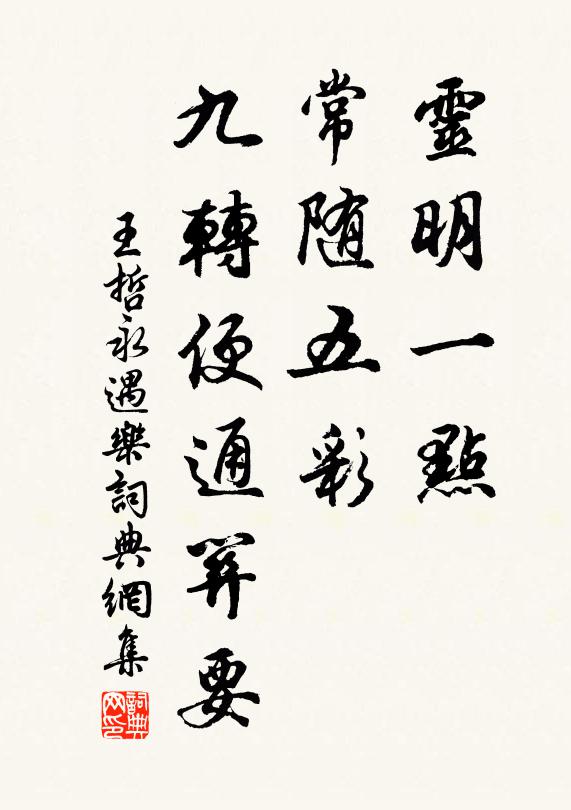 靈明一點
常随五彩
九轉便通筭要
王哲永遇樂詞典網集
詞典网印